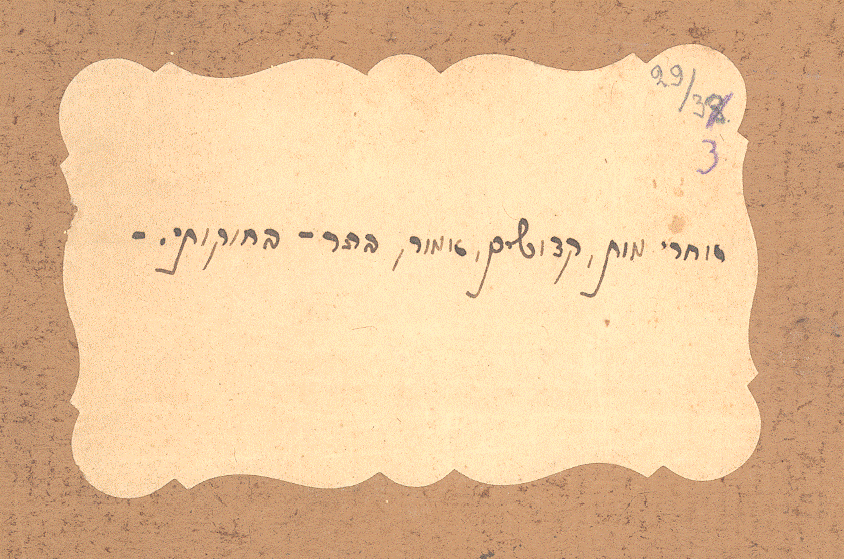 29/38
3
אחרי מות, קדושים, אמור, בהר - בחוקותי. -